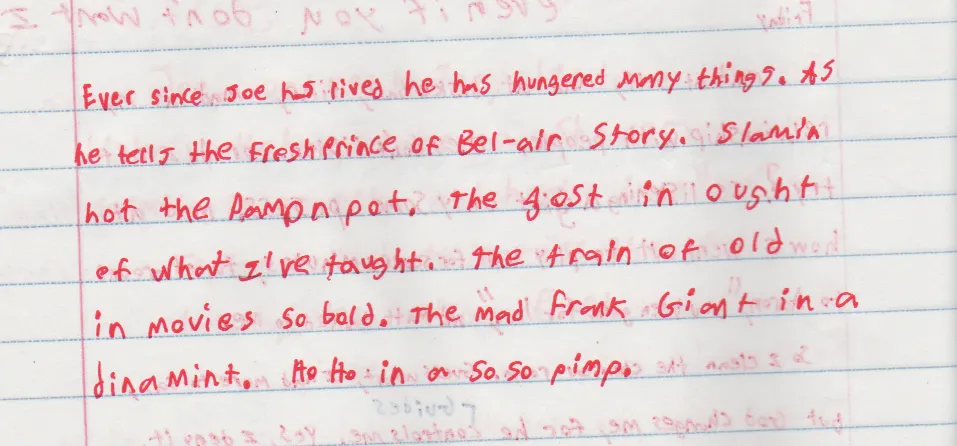 Ever since Joe has lived he has hungered many things. AS
he tells the fresh Prince of Bel-air Story. Slamin
hot the pot. The gost in ought
of what I've taught. The train of old
in movies so bold. The mad frank Giant in a
dinamint. Ho Ho in a so so pimp.